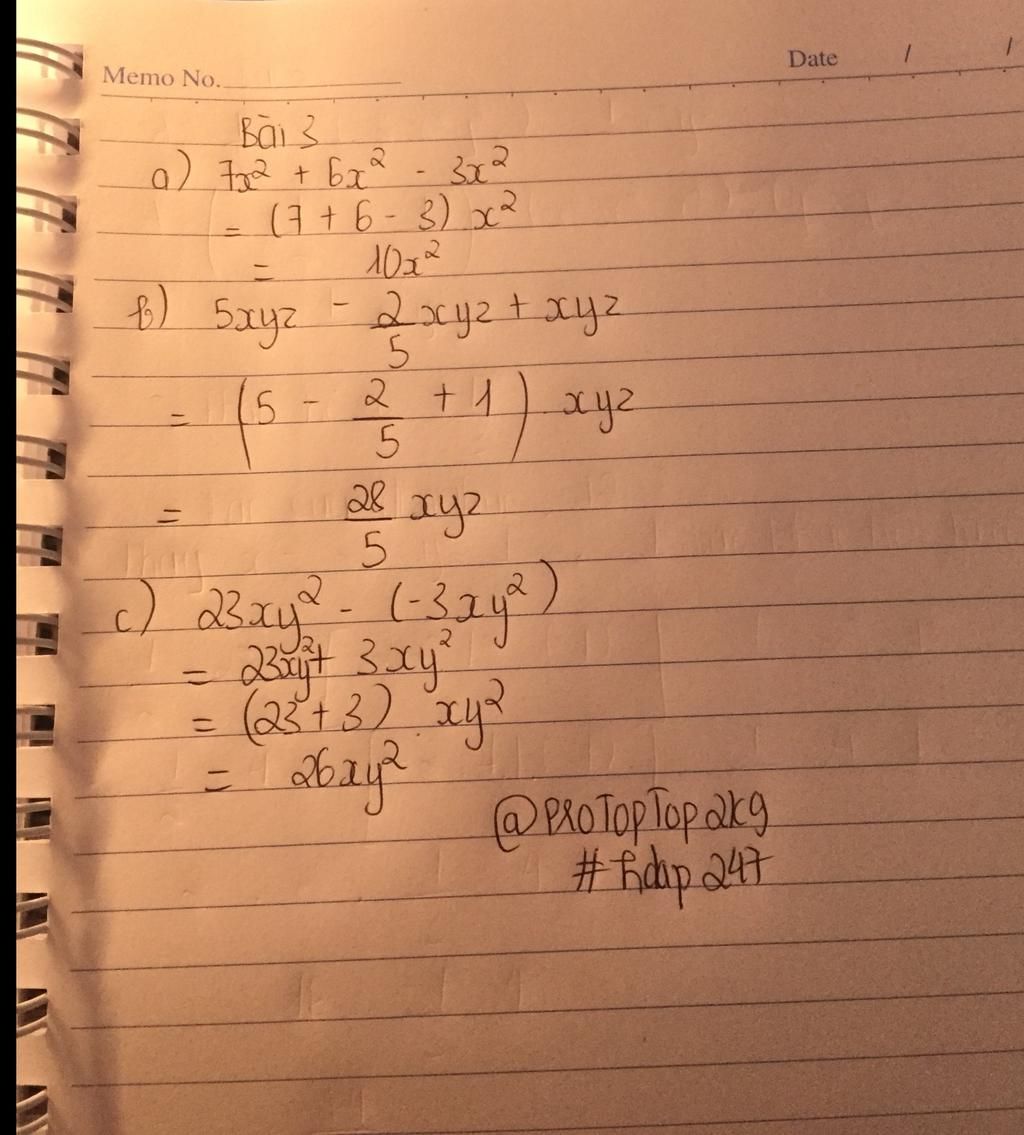 Memo No.
Date / /
Bài 3
a) 7x² + 6x² - 3x²
= (7 + 6 - 3) x²
= 10x²
b) 5xyz - 2/5 xyz + xyz
= (5 - 2/5 + 1) xyz
= 28/5 xyz
c) 23xy² - (-3xy²)
= 23xy² + 3xy²
= (23 + 3) xy²
= 26xy²
@PROTOPTOP2K9
# hdap 247